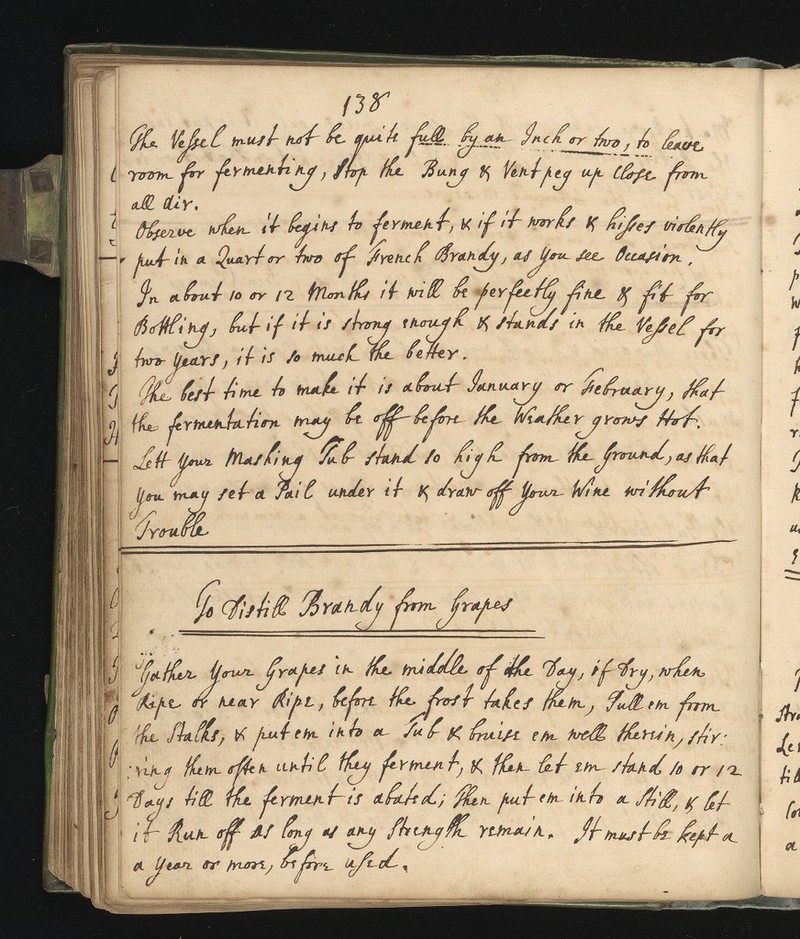 138
The Vessel must not be quite full by an Inch or two, to leave
room for fermenting, Stop the Bung & Vent peg up Close from
all Air.
Observe when it begins to ferment, & if it works & hisses violently
put in a Quart or two of French Brandy, as you see Occasion.
In about 10 or 12 Months it will be perfectly fine & fit for
Bottling, but if it is strong enough & stands in the Vessel for
two years, it is so much the better.
The best time to make it is about January or February, that
the fermentation may be off before the Weather grows Hot.
Lett your Mashing Tub stand so high from the Ground, as that
you may set a Pail under it & draw off your Wine without
Trouble
To Distill Brandy from Grapes
Gather your Grapes in the middle of the Day, if Dry, when
Ripe or near Ripe, before the frost takes them, Pull em from
the Stalks, & put em into a Tub & bruise em well therein, stir:
:ring them often until they ferment, & then let em stand 10 or 12
Days till the ferment is abated; Then put em into a Still, & let
it Run off as long as any Strength remain. It must be kept a
a year or more, before used.